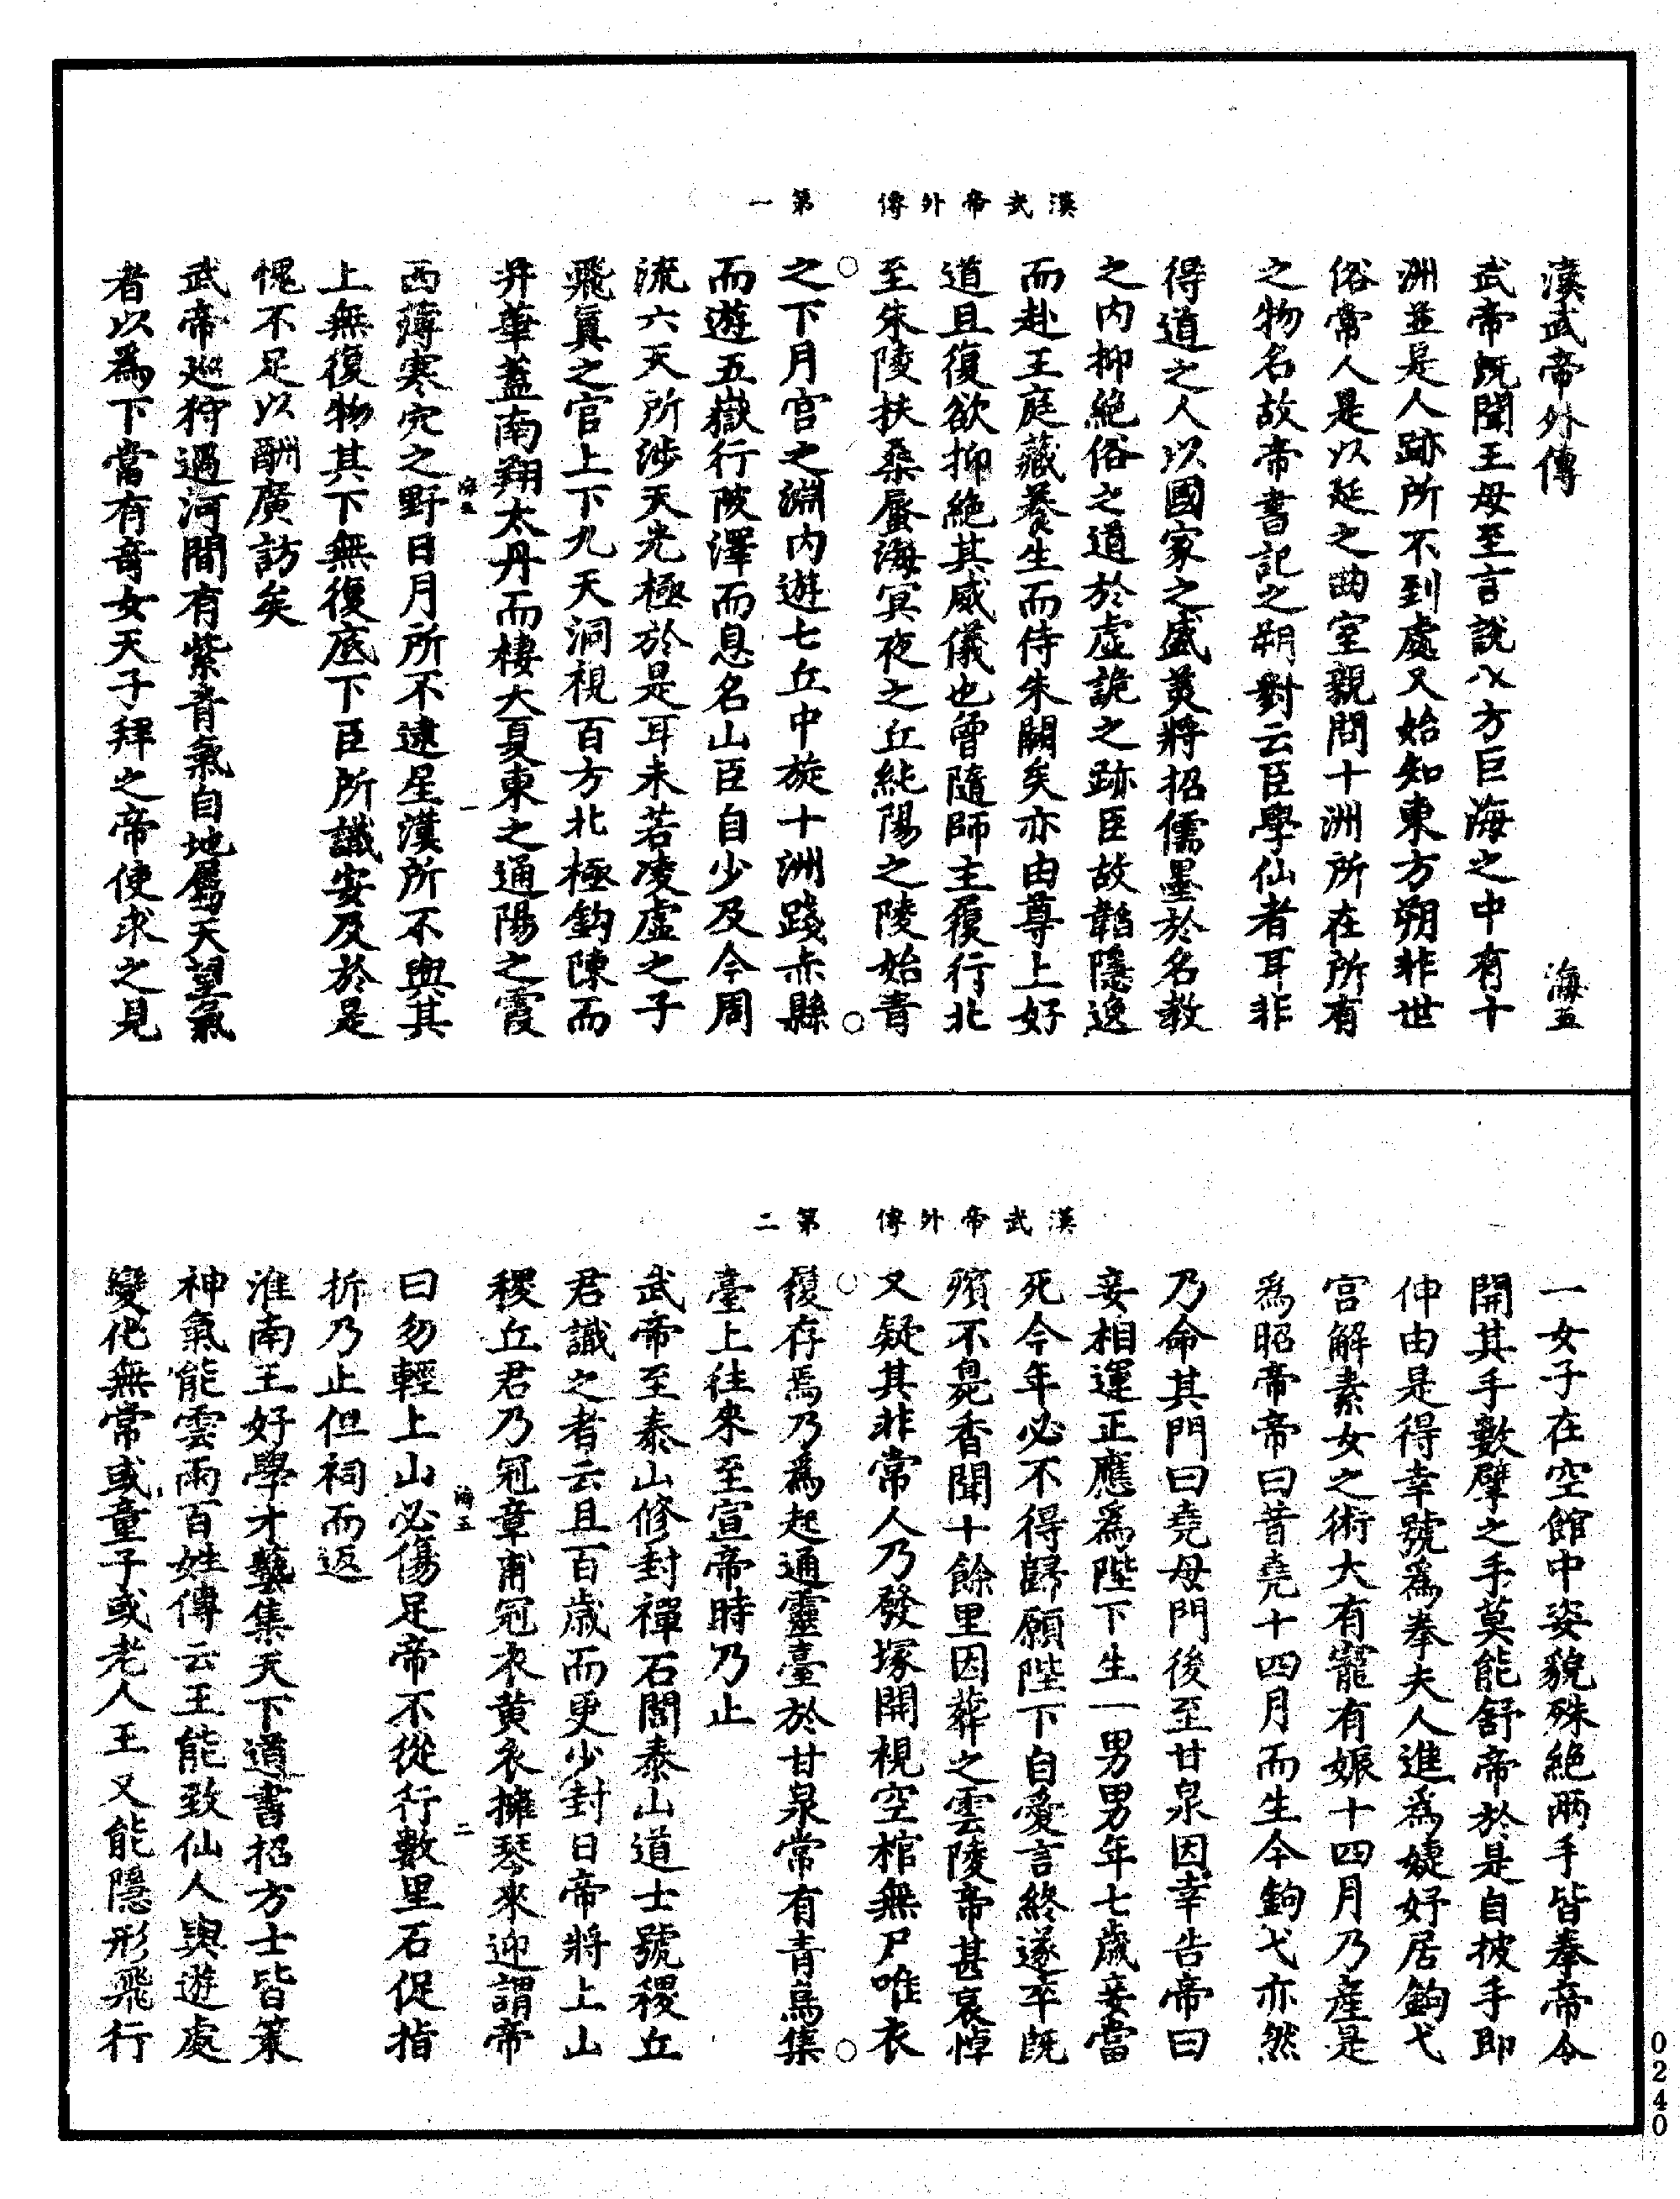 漢武帝外傳　第一
漢武帝外傳　海五
武帝既聞王母至言說八方巨海之中有十
洲並是人跡所不到處又始知東方朔非世
俗常人是以延之曲室親問十洲所在所有
之物名故帝書記之朔對云臣學仙者耳非
得道之人以國家之盛美將招儒墨於名教
之內抑絕俗之道於虛詭之跡臣故韜隱逸
而赴王庭藏養生而侍朱闕矣亦由尊上好
道且復欲抑絕其威儀也曾隨師主履行北
至朱陵扶桑蜃海冥夜之丘純陽之陵始青
之下月宮之淵內遊七丘中旋十洲踐赤縣
而遊五嶽行陂澤而息名山臣自少及今周
流六天所涉天光極於是耳未若凌虛之子
飛真之官上下九天洞視百方北極鉤陳而
并華蓋南翔太丹而棲大夏東之通陽之霞
海五　一
西薄寒穴之野日月所不逮星漢所不與其
上無復物其下無復底下臣所識安及於是
愧不足以酬廣訪矣
武帝巡狩過河間有紫青氣自地屬天望氣
者以為下當有奇女天子拜之帝使求之見
漢武帝外傳　第二
一女子在空館中姿貌殊絕兩手皆拳帝令
開其手數擘之手莫能舒帝於是自披手即
伸由是得幸號為拳夫人進為婕妤居鉤弋
宮解素女之術大有寵有娠十四月乃產是
為昭帝帝曰昔堯十四月而生今鉤弋亦然
乃命其門曰堯母門後至甘泉因幸告帝曰
妾相運正應為陛下生一男男年七歲妾當
死今年必不得歸願陛下自愛言終遂卒既
殯不臭香聞十餘里因葬之雲陵帝甚哀悼
又疑其非常人乃發塚開視空棺無尸唯衣
履存焉乃為起通靈臺於甘泉常有青鳥集
臺上往來至宣帝時乃止
武帝至泰山修封禪石閭泰山道士號稷丘
君識之者云且百歲而更少封日帝將上山
稷丘君乃冠章甫冠衣黃衣擁琴來迎謂帝
海五　二
曰勿輕上山必傷足帝不從行數里石促指
折乃止但祠而返
淮南王好學才藝集天下道書招方士皆策
神氣能雲雨百姓傳云王能致仙人與遊處
變化無常或童子或老人王又能隱形飛行
0240